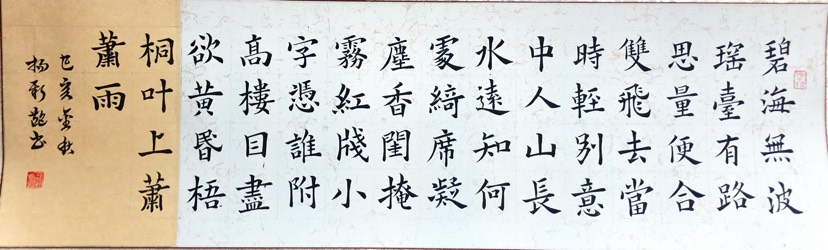 碧海無波
瑤臺有路
思量便合
雙飛去當
時輕別意
中人山長
水遠知何
處綺席凝
塵香閨掩
霧紅牋小
字憑誰附
高樓目盡
欲黄昬梧
桐叶上蕭
蕭雨
己亥金秋
杨新书